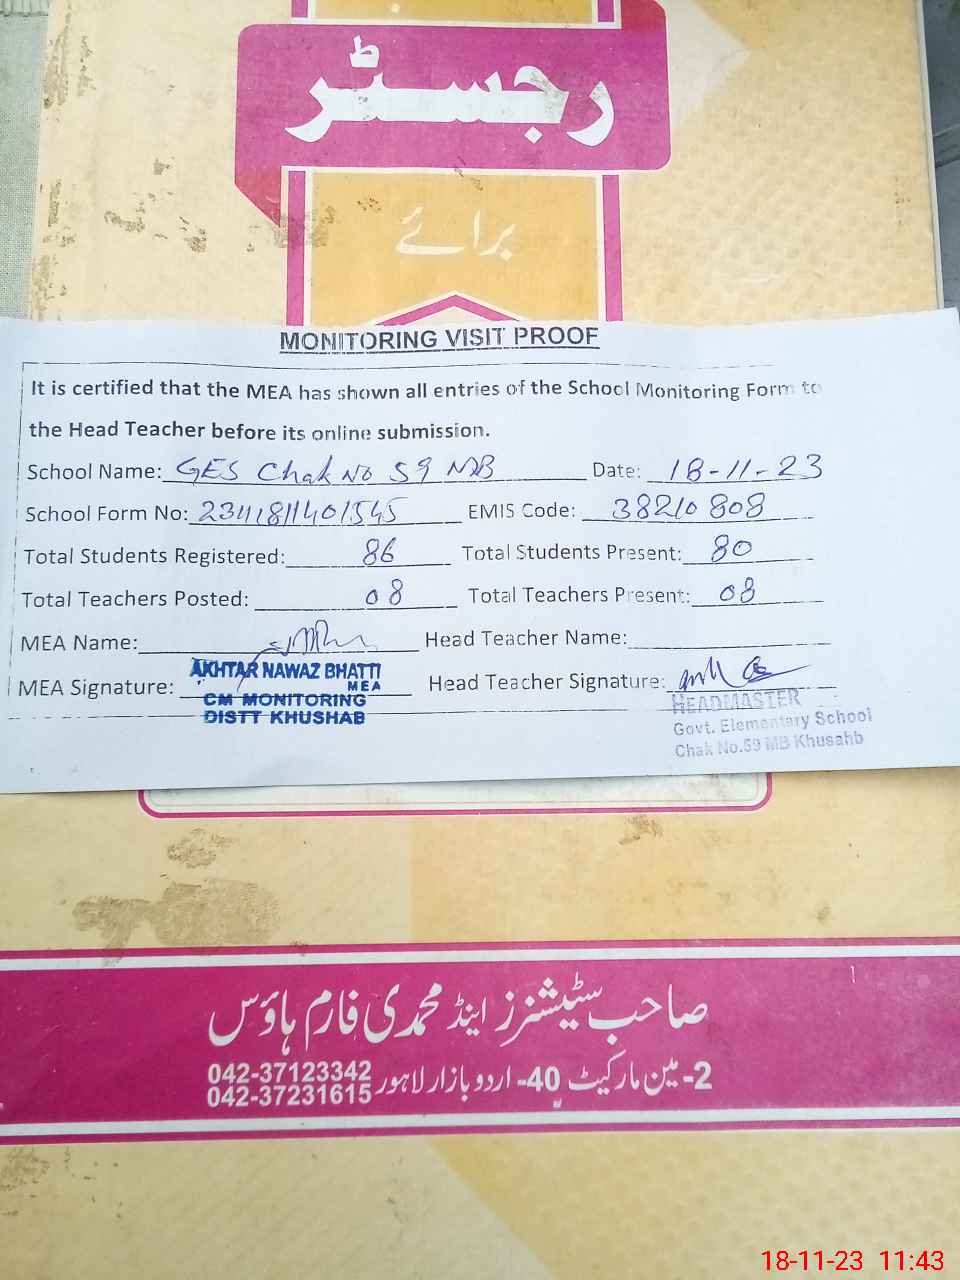 رجسٹر
برائے
MONITORING VISIT PROOF
It is certified that the MEA has shown all entries of the School Monitoring Form to
the Head Teacher before its online submission.
School Name: GES Chak No 59 MB Date: 18-11-23
School Form No: EMIS Code: 38210808
Total Students Registered: 86 Total Students Present: 80
Total Teachers Posted: 08 Total Teachers Present: 08
MEA Name: Head Teacher Name:
AKHTAR NAWAZ BHATTI
MEA
MEA Signature: Head Teacher Signature:
CM MONITORING
DISTT KHUSHAB
HEADMASTER
Govt. Elementary School
Chak No.59 MB Khusahb
صاحب سٹیشنرز اینڈ محمدی فارم ہاؤس
2-مین مارکیٹ 40-اردو بازار لاہور 042-37123342
042-37231615
18-11-23 11:43